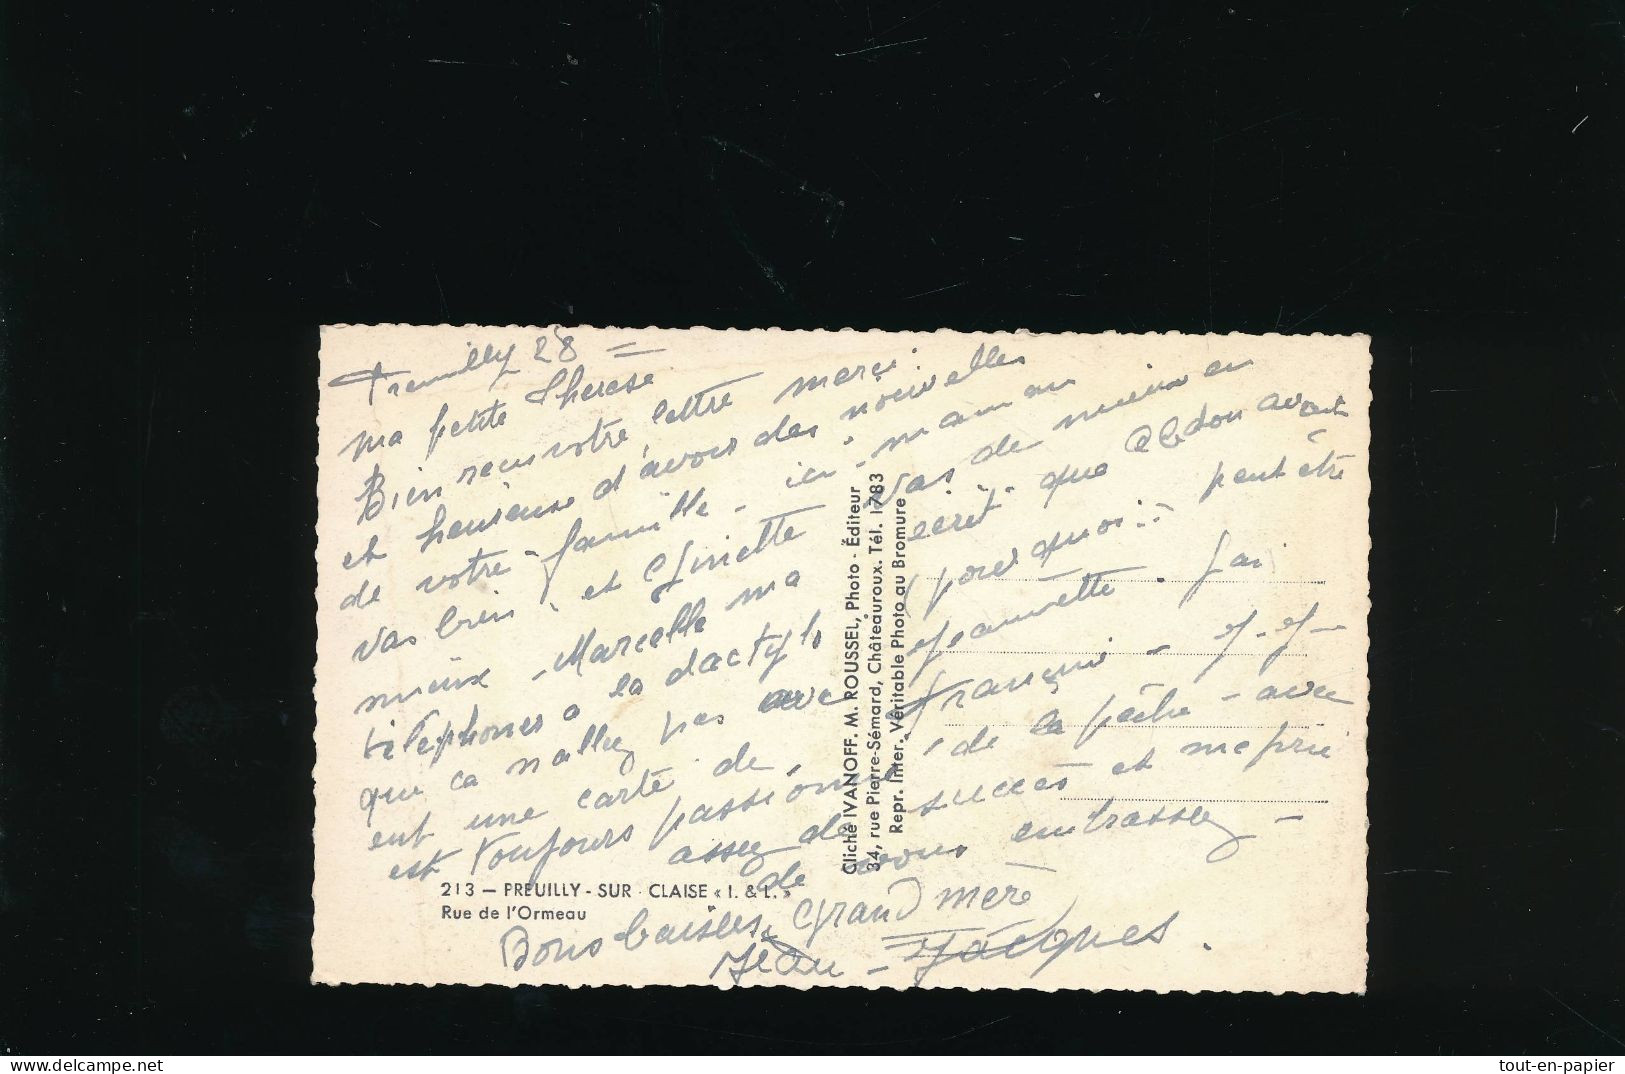 Preuilly 28
ma petite Therese
Bien recu votre lettre merci
et heureuse d'avoir des nouvelles
de votre famille - ici - maman
vas bien - et Ginette vas de mieux en
mieux - Marcelle ma ecrit que Abdon avait
télephoner a la dactylo pourquoi.. peut être
que ca n'allez pas avec Jeannette. J'ai
eut une carte de Francini - J-J-
est toujours passionné de la pêche - avec
assez de succès et me prie
de vous embrassez -
Bons baisers Grand mère
Jean - Jacques.
213 — PREUILLY - SUR - CLAISE « I. & L. »
Rue de l'Ormeau
Cliché IVANOFF. M. ROUSSEL, Photo - Éditeur
34, rue Pierre-Sémard, Châteauroux. Tél. 1783
Repr. Inter. Véritable Photo au Bromure
www.delcampe.net
tout-en-papier